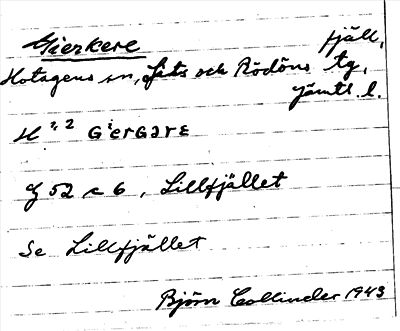 Gierkere fjäll,
Hotagens sn, Lits och Rödöns tg,
Jämtl. l.
H 1, 2 GⁱerGərɛ
G 52 c 6, Lillfjället
Se Lillfjället
Björn Collinder 1943